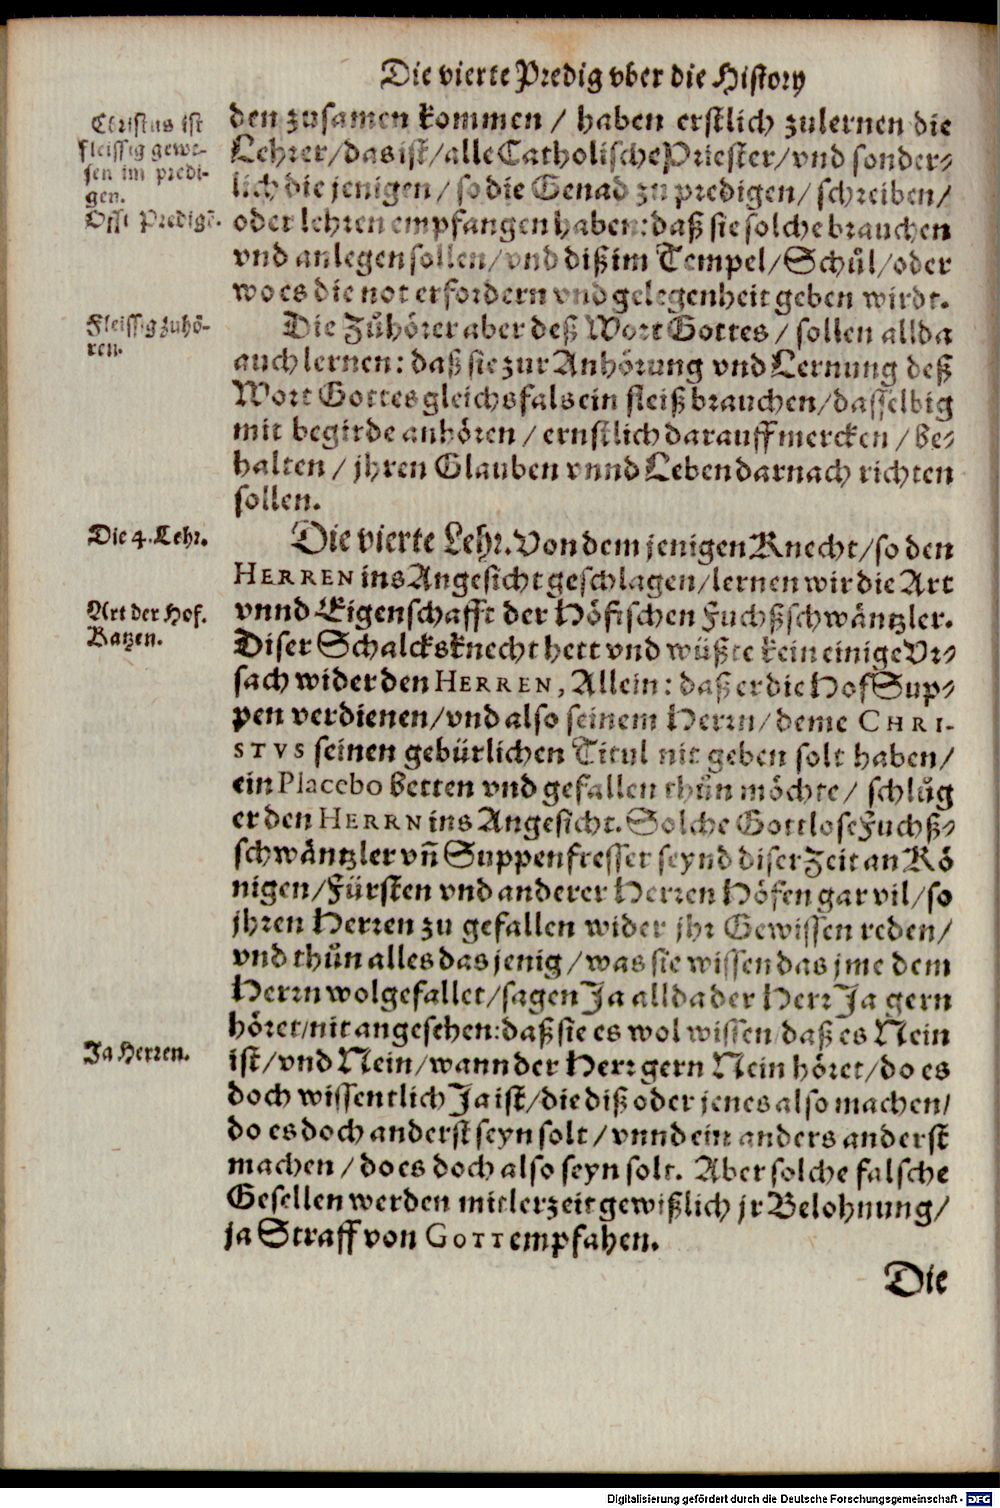 Die vierte Predig vber die History
Christus ist
fleissig gewe-
sen im predi-
gen.
Offt Predigē.
den zusamen kommen / haben erstlich zulernen die
Lehrer/das ist/alle Catholische Priester/vnd sonder-
lich die jenigen / so die Genad zu predigen / schreiben/
oder lehren empfangen haben: daß sie solche brauchen
vnd anlegen sollen/vnd diß im Tempel/Schůl/oder
wo es die not erfordern vnd gelegenheit geben wirdt.
Fleissig zuhö-
ren.
Die Zůhörer aber deß Wort Gottes / sollen allda
auch lernen: daß sie zur Anhörung vnd Lernung deß
Wort Gottes gleichsfals ein fleiß brauchen/dasselbig
mit begirde anhören / ernstlich darauff mercken / be-
halten / jhren Glauben vnnd Leben darnach richten
sollen.
Die 4. Lehr.
Die vierte Lehr. Von dem jenigen Knecht/so den
HERREN ins Angesicht geschlagen/lernen wir die Art
Art der Hof.
Katzen.
vnnd Eigenschafft der Höfischen Fuchßschwäntzler.
Diser Schalcksknecht hett vnd wüßte kein einige Vr-
sach wider den HERREN, Allein: daß er die Hof Sup-
pen verdienen/vnd also seinem Herrn/deme CHRI-
STVS seinen gebürlichen Titul nit geben solt haben/
ein Placebo betten vnd gefallen thůn möchte/ schlůg
er den HERRN ins Angesicht. Solche Gottlose Fuchß-
schwäntzler vñ Suppenfresser seynd diser Zeit an Kö
nigen/Fürsten vnd anderer Herren Höfen gar vil/so
jhren Herren zu gefallen wider jhr Gewissen reden/
vnd thůn alles das jenig/was sie wissen das jme dem
Herrn wolgefallet/sagen Ja allda der Herr Ja gern
höret/nit angesehen: daß sie es wol wissen daß es Nein
Ja Herren.
ist/vnd Nein/wann der Herr gern Nein höret/do es
doch wissentlich Ja ist/die diß oder jenes also machen/
do es doch anderst seyn solt/vnnd ein anders anderst
machen / do es doch also seyn solt. Aber solche falsche
Gesellen werden mitlerzeit gewißlich jr Belohnung/
ja Straff von GOTT empfahen.
Die
Digitalisierung gefördert durch die Deutsche Forschungsgemeinschaft - DFG